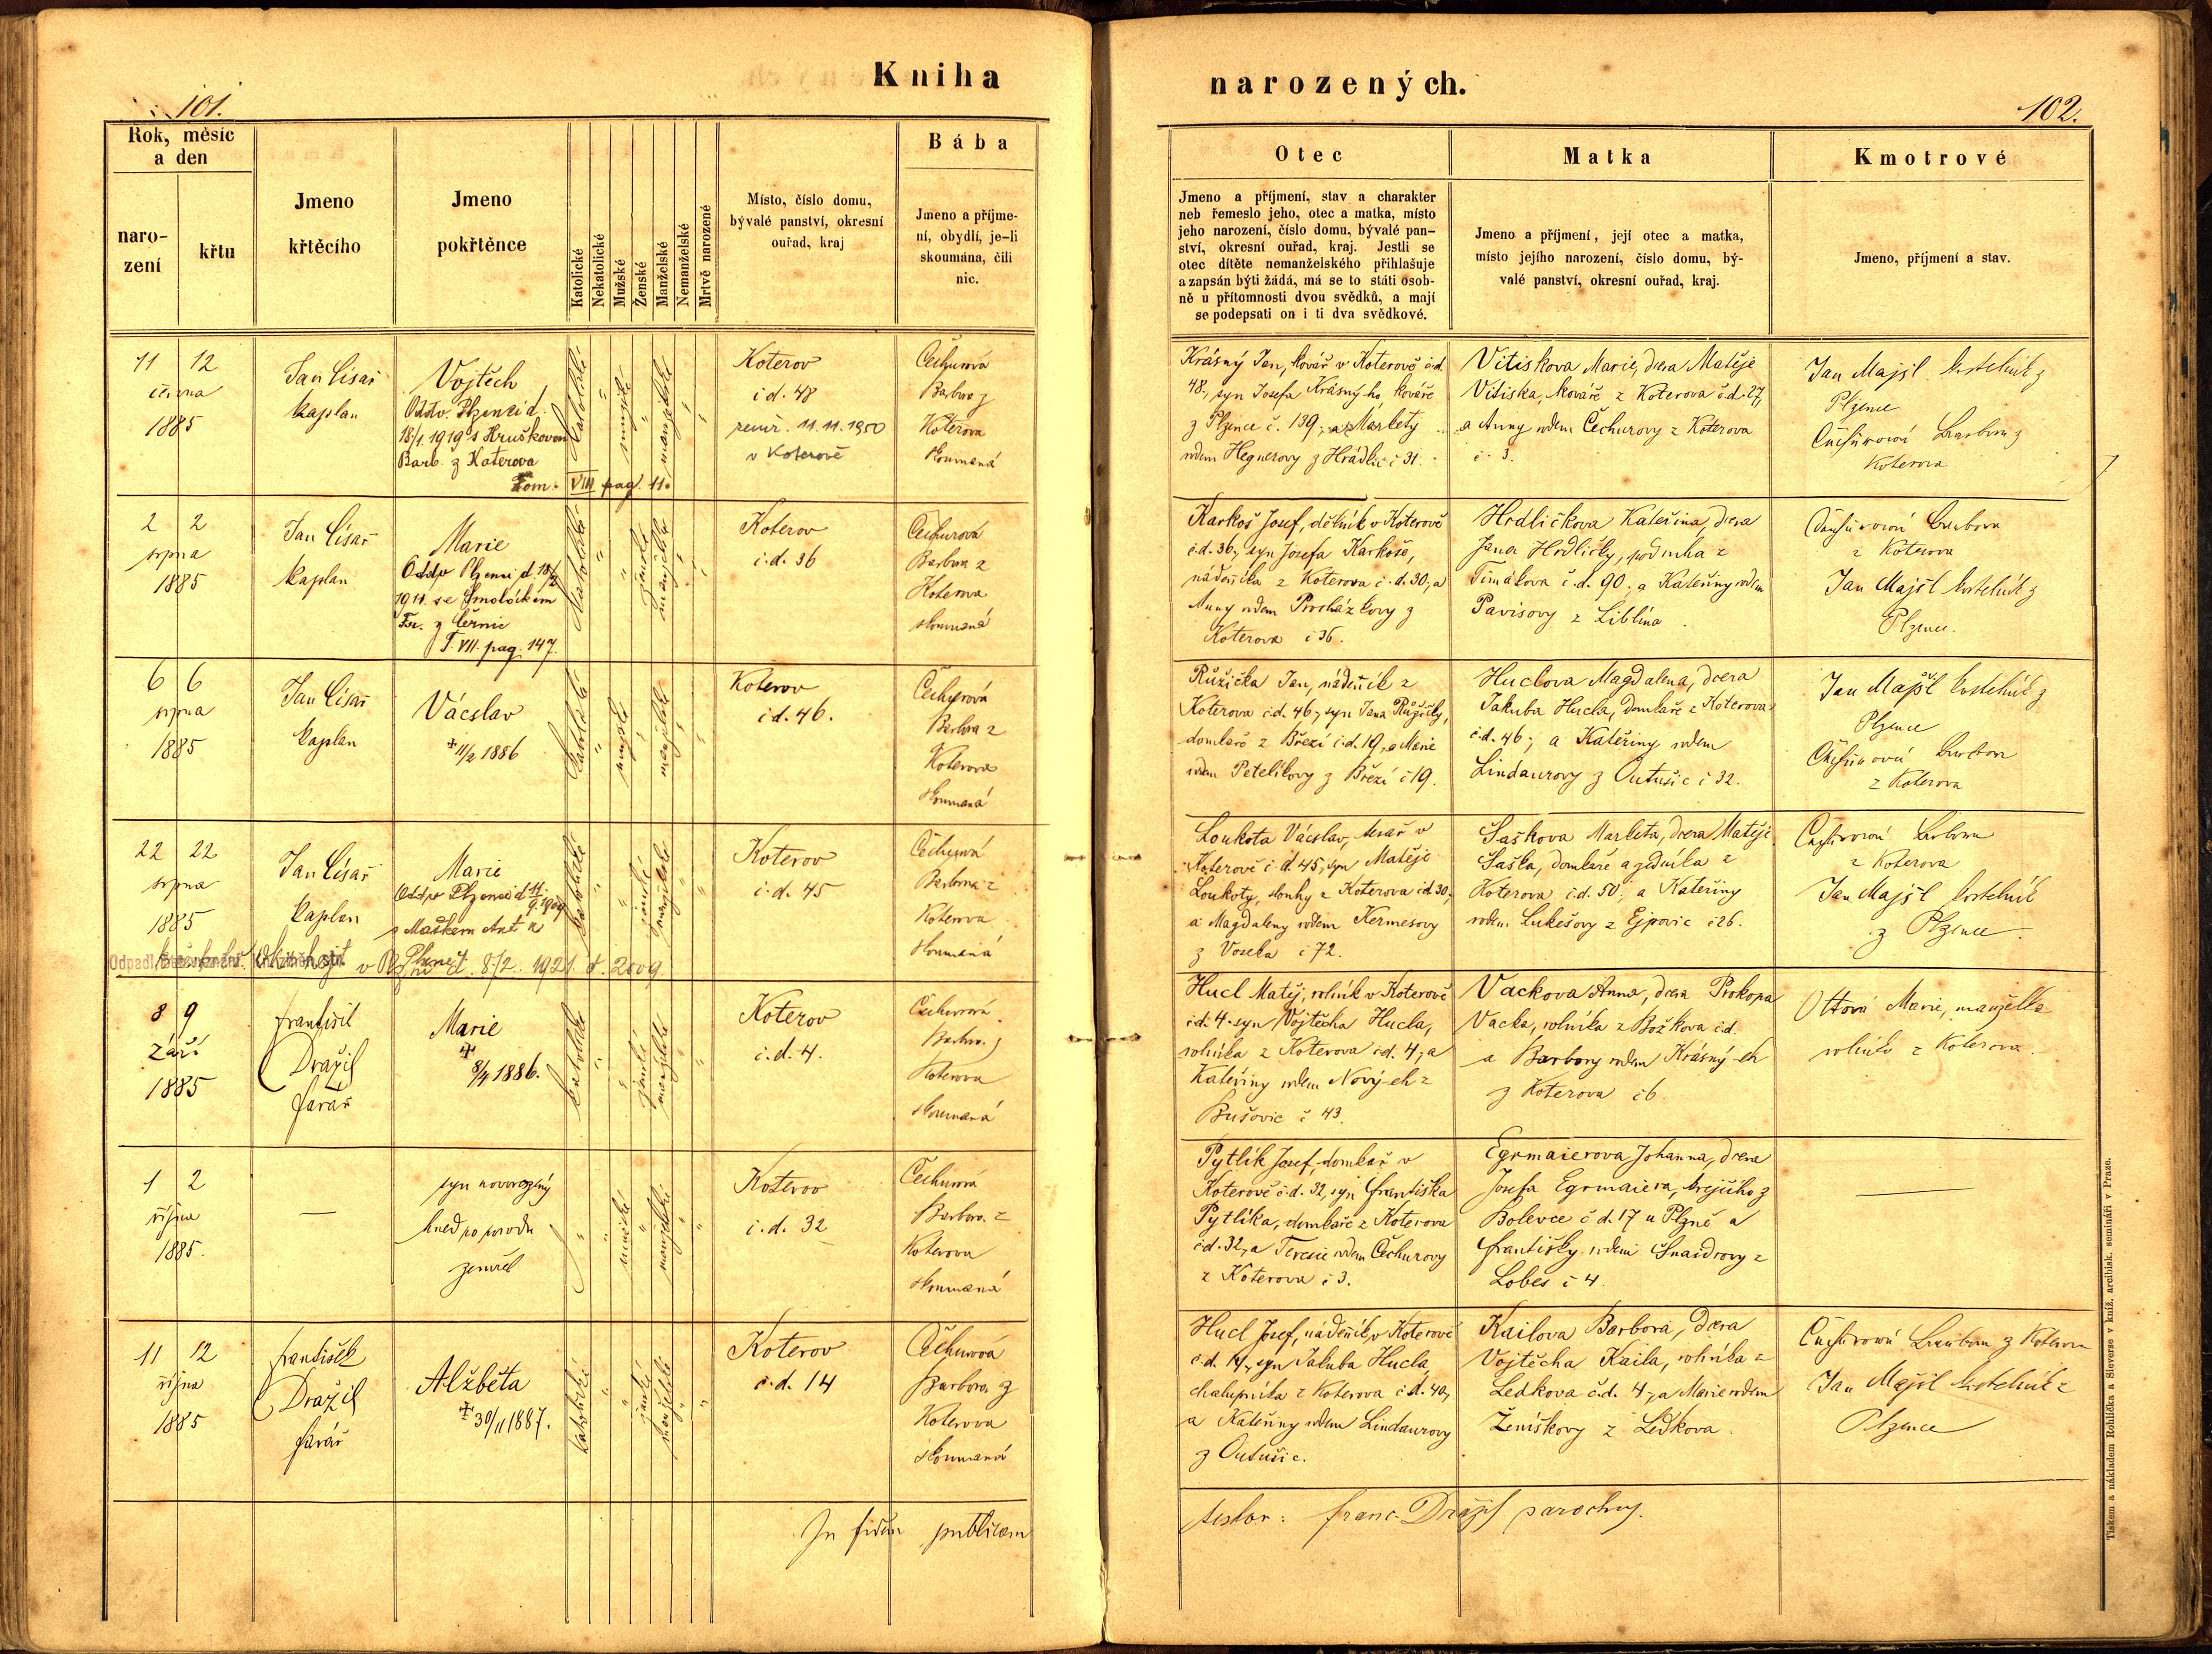 Kniha
narozených.
101.
102.
Rok, měsíc
a den
naro-
zení
křtu
Jmeno
křtěcího
Jmeno
pokřtěnce
Katolické
Nekatolické
Mužské
Ženské
Manželské
Nemanželské
Mrtvě narozené
Místo, číslo domu,
bývalé panství, okresní
ouřad, kraj
Bába
Jmeno a příjme-
ní, obydlí, je-li
skoumána, čili
nic.
Otec
Jmeno a příjmení, stav a charakter
neb řemeslo jeho, otec a matka, místo
jeho narození, číslo domu, bývalé pan-
ství, okresní ouřad, kraj. Jestli se
otec dítěte nemanželského přihlašuje
a zapsán býti žádá, má se to státi osob-
ně u přítomnosti dvou svědků, a mají
se podepsati on i ti dva svědkové.
Matka
Jmeno a příjmení, její otec a matka,
místo jejího narození, číslo domu, bý-
valé panství, okresní ouřad, kraj.
Kmotrové
Jmeno, příjmení a stav.
11 12
června
1885
Jan Císař
kaplan
Vojtěch
Oddv. Plzenci d.
18/1. 1919 s Hruškovou
Barb. z Koterova
Tom. VIII pag. 11.
katolické
mužské
manželské
Koterov
č. d. 48
11. 11. 1950
v Koterově
Čechurová
Barbora z
Koterova
skoumaná
Krásný Jan, kovář v Koterově č. d.
48, syn Josefa Krásnýho, kováře
z Plzence č. 139, a Markety
rodem Hegnerovy z Hrádku č 31.
Vitiskova Marie, dcera Matěje
Vitiska, kováře z Koterova č. d. 27,
a Anny rodem Čechurovy z Koterova
č. 3.
Jan Majšl kostelník z
Plzence
Čechurová Barbora z
Koterova
2 2
srpna
1885
Jan Císař
kaplan
Marie
Oddv. Plzenci d. 18/2
1911. se Smolíckem
Fr. z Černic
T. VII. pag. 147.
katolické
ženské
manželské
Koterov
č. d. 36
Čechurová
Barbora z
Koterova
skoumaná
Karkoš Josef, dělník v Koterově
č. d. 36, syn Josefa Karkoše,
nádeníka z Koterova č. d. 30, a
Anny rodem Procházkovy z
Koterova č 36.
Hrdličkova Kateřina, dcera
Jana Hrdličky, podruha z
Timákova č. d. 90, a Kateřiny rodem
Pavisovy z Liblína.
Čechurová Barbora
z Koterova
Jan Majšl kostelník z
Plzence.
6 6
srpna
1885
Jan Císař
kaplan
Václav
+ 11/2 1886
katolické
mužské
manželské
Koterov
č. d. 46.
Čechurová
Barbora z
Koterova
skoumaná
Růžička Jan, nádeník z
Koterova č. d. 46, syn Jana Růžičky,
domkaře z Březí č. d. 19, a Marie
rodem Petelíkovy z Březí č 19.
Huclova Magdalena, dcera
Jakuba Hucla, domkaře z Koterova
č. d. 46, a Kateřiny rodem
Lindaurovy z Outušic č 32.
Jan Majšl kostelník z
Plzence
Čechurová Barbora
z Koterova
22 22
srpna
1885
Jan Císař
kaplan
Marie
Oddv. Plzenci d. 11.
9. 1909
s Maškem Ant.
katolické
ženské
manželské
Koterov
č. d. 45
Čechurová
Barbora z
Koterova
skoumaná
v Plzni d. 8/2. 1921 č. 2009
Loukota Václav, tesař v
Koterově č. d. 45, syn Matěje
Loukoty, slouhy z Koterova č. d. 30,
a Magdaleny rodem Kermesovy
z Voseka č 72.
Šaškova Marketa, dcera Matěje
Šaška, domkaře a zedníka z
Koterova č. d. 50, a Kateřiny
rodem Lukešovy z Ejpovic č 26.
Čechurová Barbora
z Koterova
Jan Majšl kostelník
z Plzence.
8 9
září
1885
František
Dražil
farář
Marie
+
8/4 1886.
katolické
ženské
manželské
Koterov
č. d. 4.
Čechurová
Barbora z
Koterova
skoumaná
Hucl Matěj, rolník v Koterově
č. d. 4. syn Vojtěcha Hucla,
rolníka z Koterova č. d. 4, a
Kateřiny rodem Nových z
Bušovic č 43.
Vackova Anna, dcera Prokopa
Vacka, rolníka z Božkova č. d.
a Barbory rodem Krásných
z Koterova č 6
Ottová Marie, manželka
rolníka z Koterova.
1 2
října
1885.
—
syn novorozený
hned po porodu
zemřel
mužské
manželské
Koterov
č. d. 32
Čechurová
Barbora z
Koterova
skoumaná
Pytlík Josef, domkař v
Koterově č. d. 32, syn Františka
Pytlíka, domkaře z Koterova
č. d. 32, a Terezie rodem Čechurovy
z Koterova č 3.
Egrmaierova Johanna, dcera
Josefa Egrmaiera, krejčího z
Bolevce č d. 17 u Plzně a
Františky rodem Šnaidrovy z
Lobes č 4.
—
11 12
října
1885
František
Dražil
farář
Alžběta
+ 30/11 1887.
katolické
ženské
manželské
Koterov
č. d. 14
Čechurová
Barbora z
Koterova
skoumaná
Hucl Josef, nádeník v Koterově
č. d. 14, syn Jakuba Hucla,
chalupníka z Koterova č. d. 40,
a Kateřiny rodem Lindaurovy
z Outušic.
Kailova Barbora, dcera
Vojtěcha Kaila, rolníka z
Ledkova č. d. 4, a Marie rodem
Ženíškovy z Ledkova.
Čechurová Barbora z Koterova
Jan Majšl kostelník z
Plzence
In fidem publicam
testor: Franc. Dražil parochus.
Tiskem a nákladem Rohlíčka a Sieverse v kníž. arcibisk. semináři v Praze.